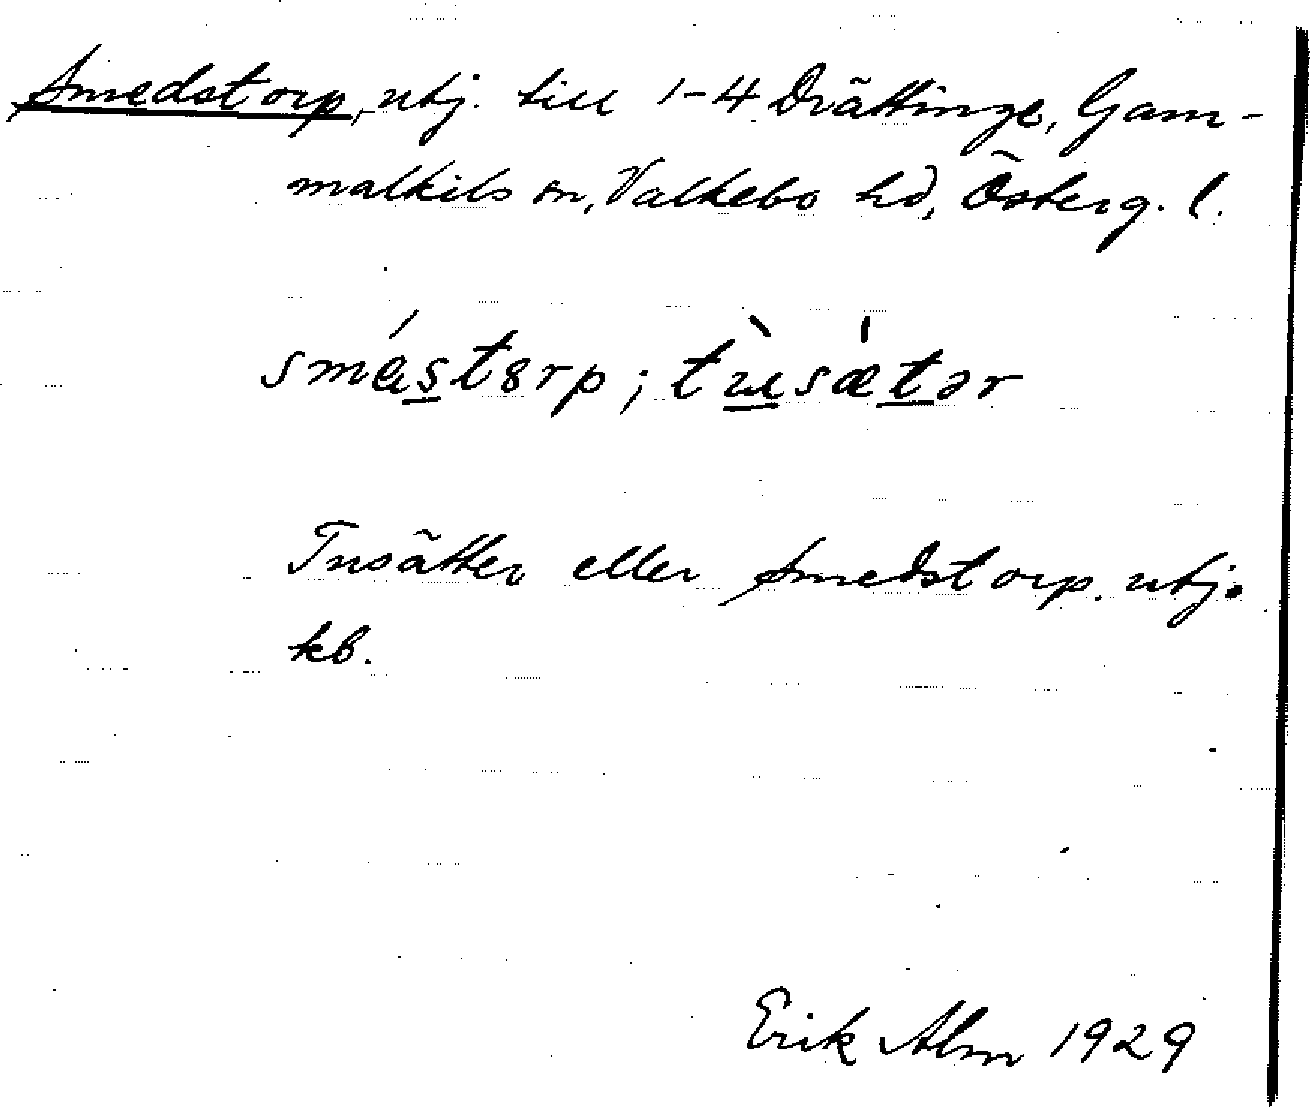 Smedstorp, utj. till 1-4 Drättinge, Gam-
malkils sn, Valkebo hd, Österg. l.
smé̢s̲t8rp; tɯ̲̀sæ̍t̲ər
Tusätter eller Smedstorp. utj.
kb.
Erik Alm 1929